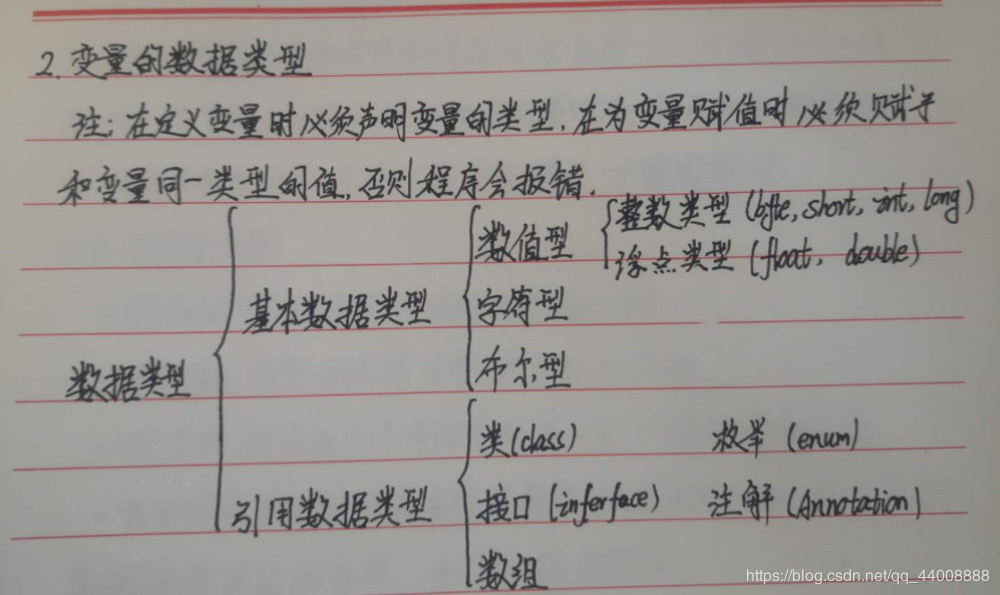 2. 变量的数据类型
注: 在定义变量时必须声明变量的类型. 在为变量赋值时必须赋予
和变量同一类型的值, 否则程序会报错.
数值型 整数类型 (byte, short, int, long)
浮点类型 (float, double)
基本数据类型 字符型
布尔型
数据类型
类(class) 枚举 (enum)
引用数据类型 接口 (inferface) 注解 (Annotation)
数组
https://blog.csdn.net/qq_44008888